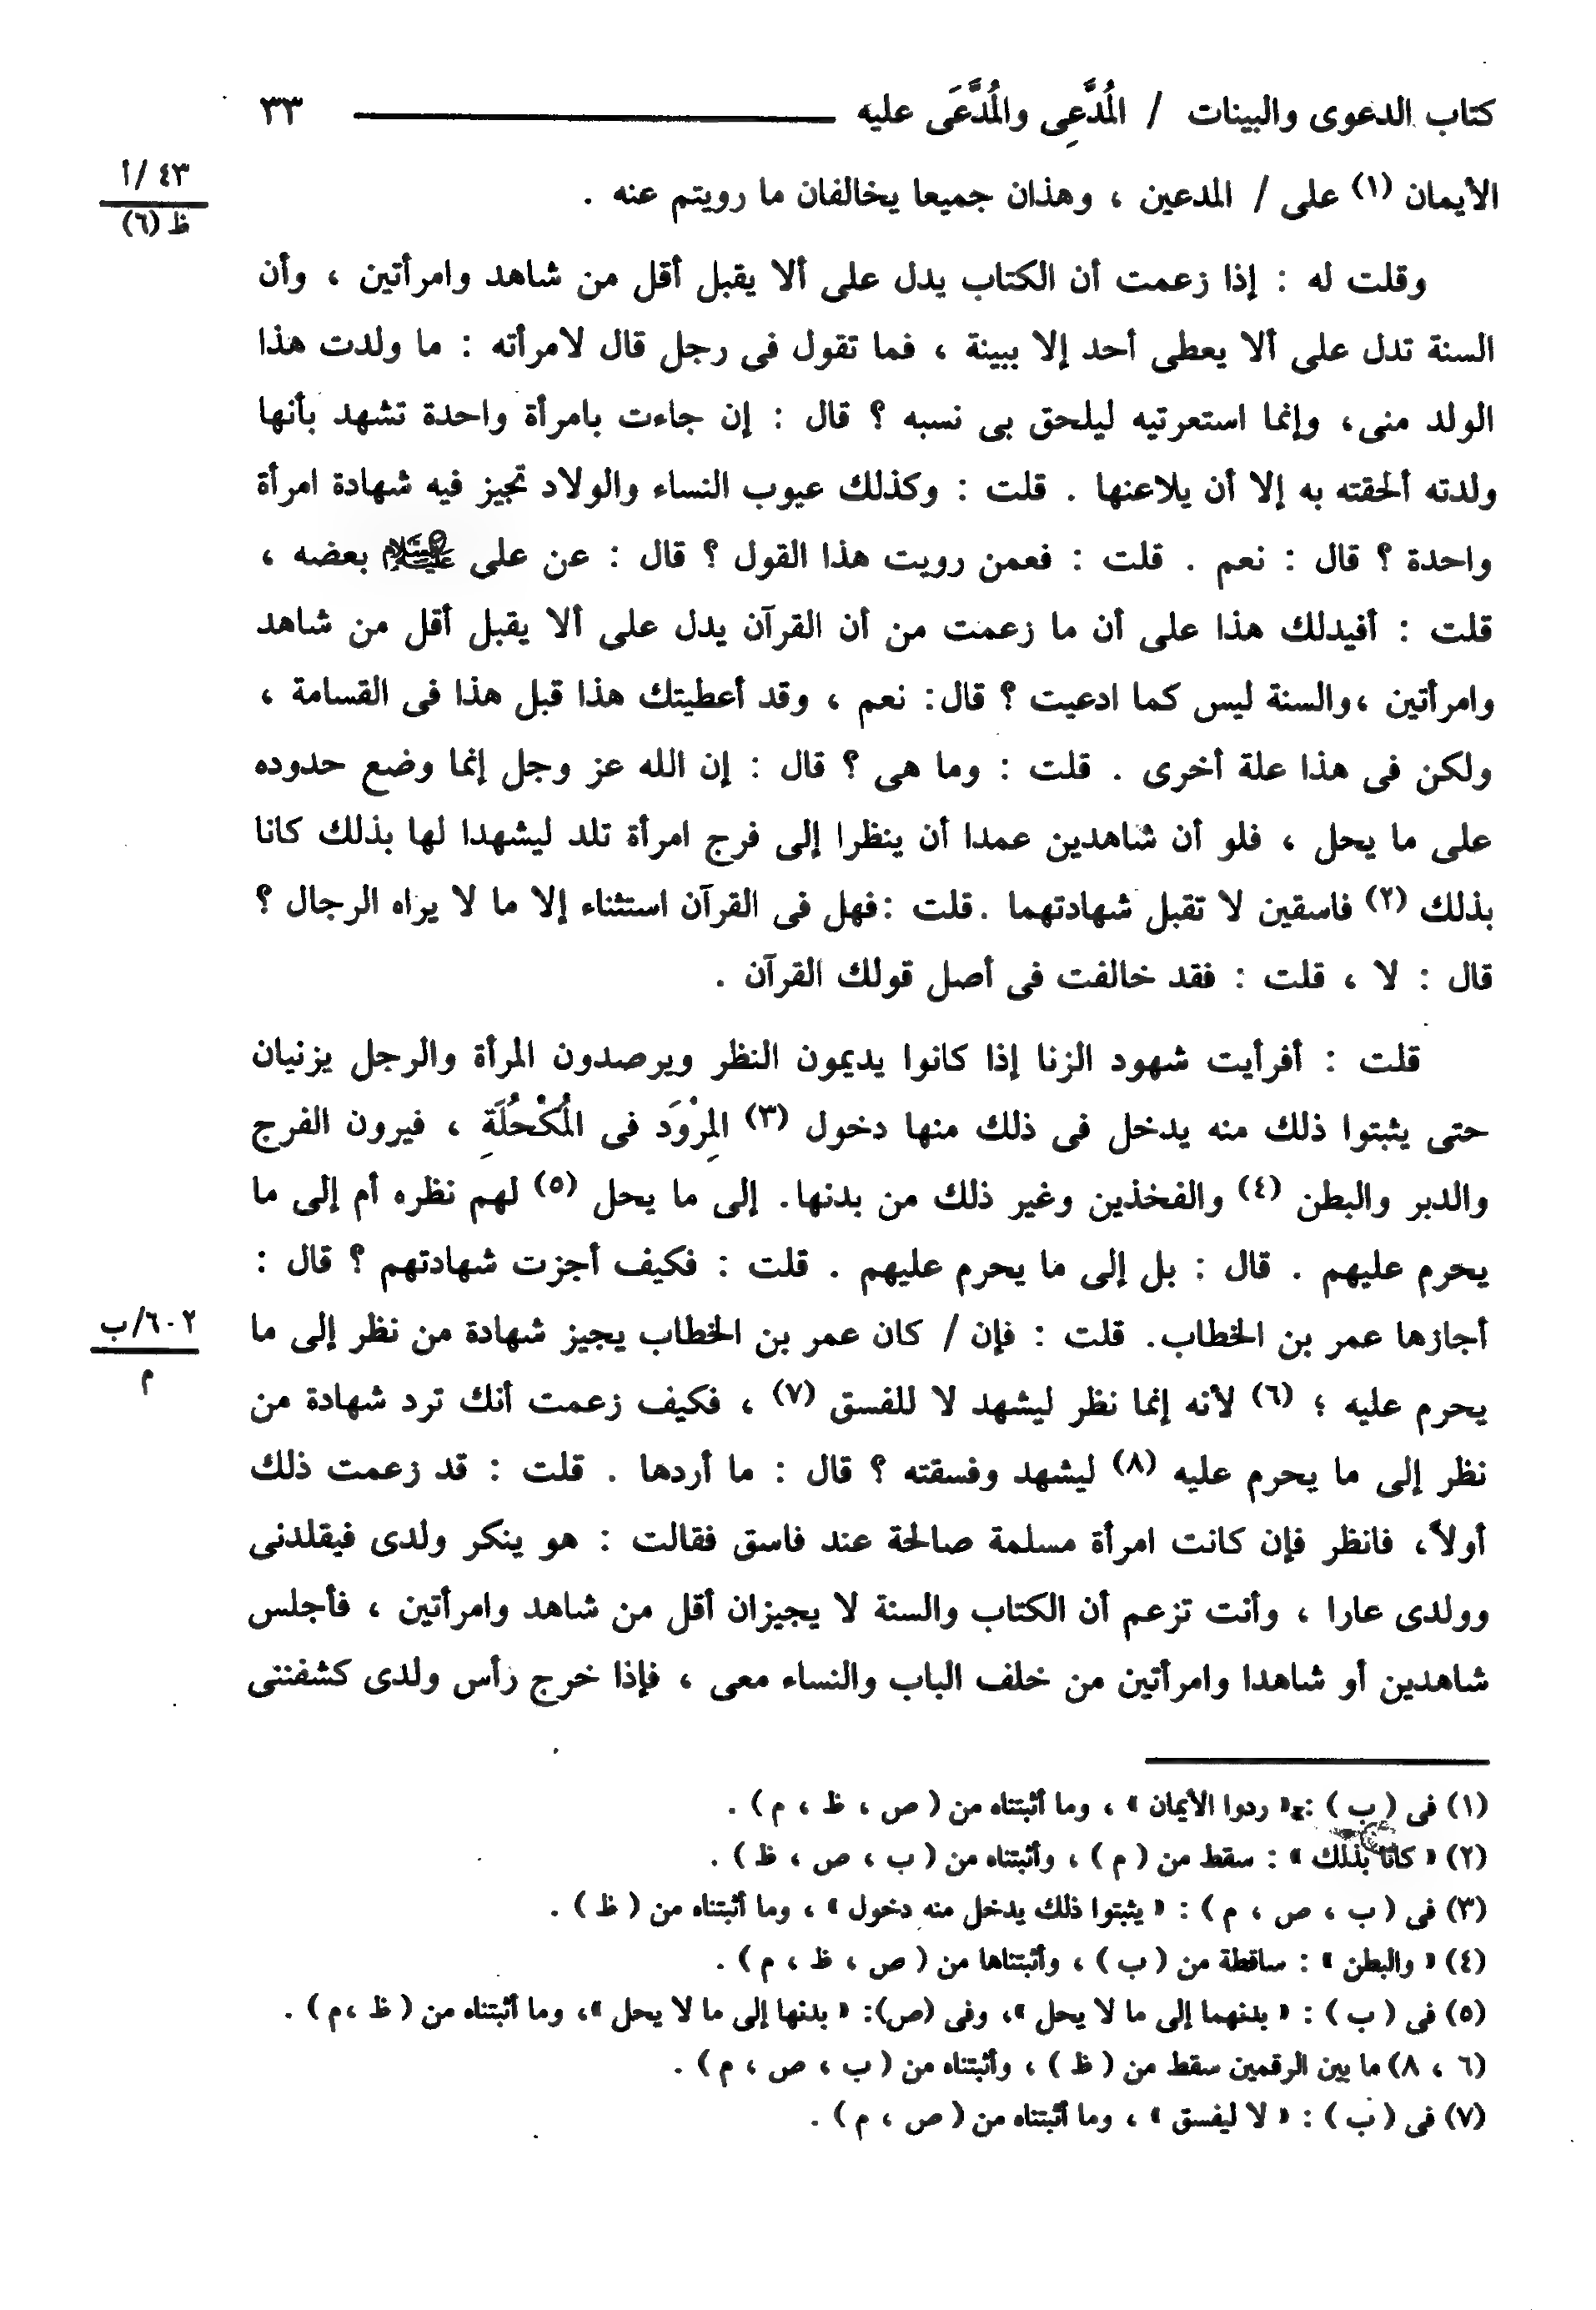 كتاب الدعوى والبينات / المُدَّعِى والمُدَّعَى عليه ٣٣
٤٣ /أ
ظ (٦)
الأيمان (١) على / المدعين ، وهذان جميعا يخالفان ما رويتم عنه .
وقلت له : إذا زعمت أن الكتاب يدل على ألا يقبل أقل من شاهد وامرأتين ، وأن
السنة تدل على ألا يعطى أحد إلا ببينة ، فما تقول فى رجل قال لامرأته : ما ولدت هذا
الولد منى، وإنما استعرتيه ليلحق بى نسبه ؟ قال : إن جاءت بامرأة واحدة تشهد بأنها
ولدته ألحقته به إلا أن يلاعنها . قلت : وكذلك عيوب النساء والولاد تجيز فيه شهادة امرأة
واحدة ؟ قال : نعم . قلت : فعمن رويت هذا القول ؟ قال : عن على عليه السلام بعضه ،
قلت : أفيدلك هذا على أن ما زعمت من أن القرآن يدل على ألا يقبل أقل من شاهد
وامرأتين ،والسنة ليس كما ادعيت ؟ قال: نعم ، وقد أعطيتك هذا قبل هذا فى القسامة ،
ولكن فى هذا علة أخرى . قلت : وما هى ؟ قال : إن الله عز وجل إنما وضع حدوده
على ما يحل ، فلو أن شاهدين عمدا أن ينظرا إلى فرج امرأة تلد ليشهدا لها بذلك كانا
بذلك (٢) فاسقين لا تقبل شهادتهما .قلت :فهل فى القرآن استثناء إلا ما لا يراه الرجال ؟
قال : لا ، قلت : فقد خالفت فى أصل قولك القرآن .
قلت : أفرأيت شهود الزنا إذا كانوا يديمون النظر ويرصدون المرأة والرجل يزنيان
حتى يثبتوا ذلك منه يدخل فى ذلك منها دخول (٣) المِرْوَد فى المُكْحُلَةِ ، فيرون الفرج
والدبر والبطن (٤) والفخذين وغير ذلك من بدنها. إلى ما يحل (٥) لهم نظره أم إلى ما
يحرم عليهم . قال : بل إلى ما يحرم عليهم . قلت : فكيف أجزت شهادتهم ؟ قال :
أجازها عمر بن الخطاب. قلت : فإن / كان عمر بن الخطاب يجيز شهادة من نظر إلى ما
٦٠٢/ب
م
يحرم عليه ؛ (٦) لأنه إنما نظر ليشهد لا للفسق (٧) ، فكيف زعمت أنك ترد شهادة من
نظر إلى ما يحرم عليه (٨) ليشهد وفسقته ؟ قال : ما أردها . قلت : قد زعمت ذلك
أولاً، فانظر فإن كانت امرأة مسلمة صالحة عند فاسق فقالت : هو ينكر ولدى فيقلدنى
وولدى عارا ، وأنت تزعم أن الكتاب والسنة لا يجيزان أقل من شاهد وامرأتين ، فأجلس
شاهدين أو شاهدا وامرأتين من خلف الباب والنساء معى ، فإذا خرج رأس ولدى كشفننى
(١) فى ( ب ) : « ردوا الأيمان » ، وما أثبتناه من ( ص ، ظ ، م ) .
(٢) « كانا بذلك » : سقط من ( م ) ، وأثبتناه من ( ب ، ص ، ظ ) .
(٣) فى ( ب ، ص ، م ) : « يثبتوا ذلك يدخل منه دخول » ، وما أثبتناه من ( ظ ) .
(٤) « والبطن » : ساقطة من ( ب ) ، وأثبتناها من ( ص ، ظ ، م ) .
(٥) فى ( ب ) : « بدنهما إلى ما لا يحل »، وفى (ص): « بدنها إلى ما لا يحل »، وما أثبتناه من ( ظ ،م ) .
(٦ ، ٨) ما بين الرقمين سقط من ( ظ ) ، وأثبتناه من ( ب ، ص ، م ) .
(٧) فى ( ب ) : « لا ليفسق » ، وما أثبتناه من ( ص ، م ) .